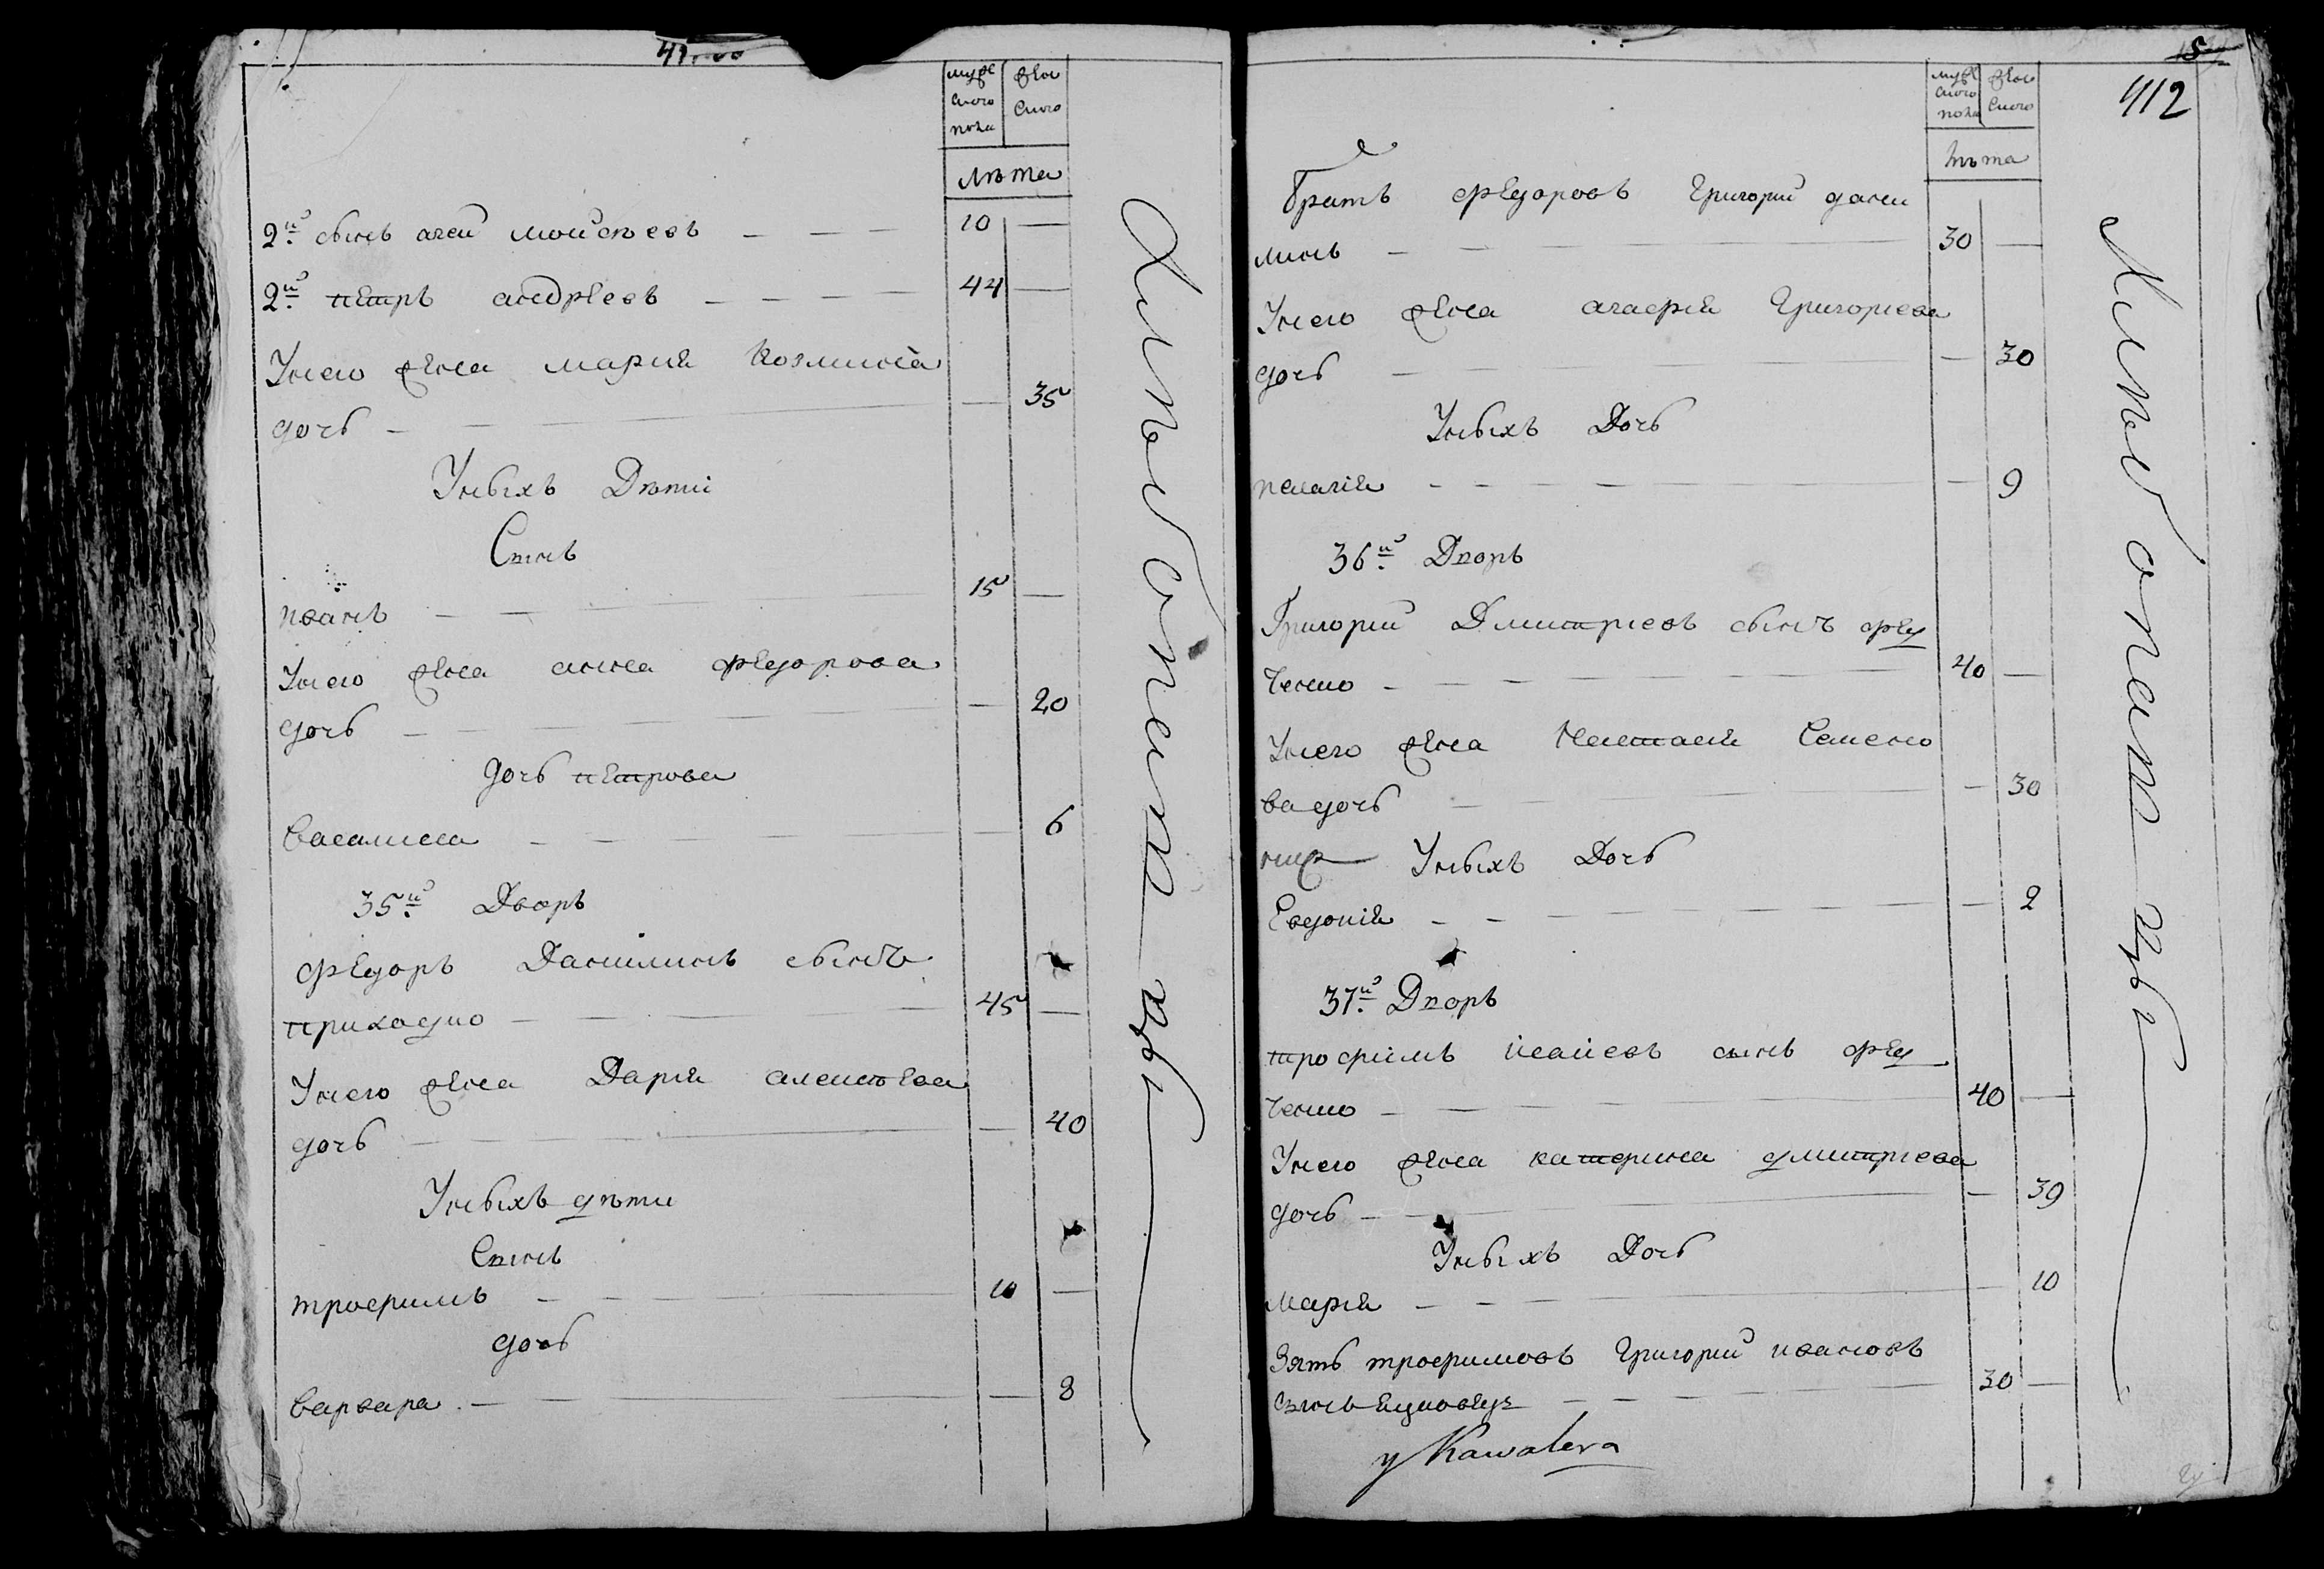 муже
ского
пола
жен
ского
лѣта
2й сынъ агей мойсѣевъ — — — 10 —
2й петръ андреевъ — — — — 44 —
Унего жена мария козмина
дочь — — — — 35
Унбихъ Дѣти
Сынъ
иванъ — — 15 —
Унего жена анна федорова
дочь — — — — 20
дочь петрова
василиса — — — — 6
35й Дворъ
федоръ Данилинъ сынъ
приходко — — — 45 —
Унего жена Дария алексѣева
дочь — — — 40
Унбихъ дѣти
Сынъ
трофимъ — — — 10 —
дочь
варвара — — — 8
412
муже
ского
пола
жен
ского
лѣта
братъ федоровъ григорий дани
линъ — — — 30 —
Унего жена агафия григориева
дочь — — — 30
Унбихъ Дочь
пелагия — — — — 9
36й Дворъ
Григорий Дмитриевъ сынъ фед
ченко — — — 40 —
Унего жена Настасия Семено
ва дочь — — — 30
Унбихъ Дочь
Евдокия — — — 2
37й Дворъ
трофимъ исаиевъ сынъ фед
ченко — — — 40 —
Унего жена катерина дмитриева
дочь — — — 39
Унбихъ Дочь
Мария — — — 10
Зять трофимовъ григорий ивановъ
сынъ — — — 30 —
у Kawalera